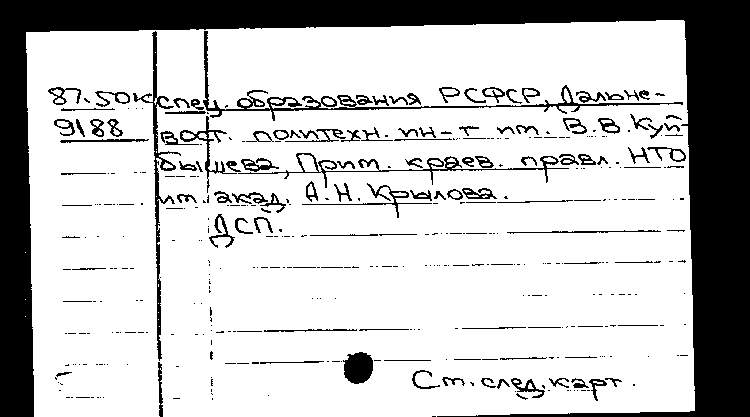 87.50к спец. образования РСФСР, Дальне-
9188 вост. политехн. ин-т им. В.В.Куй-
бышева, Прим. краев. правл. НТО
им. акад. А.Н.Крылова.
ДСП.
См. след. карт.